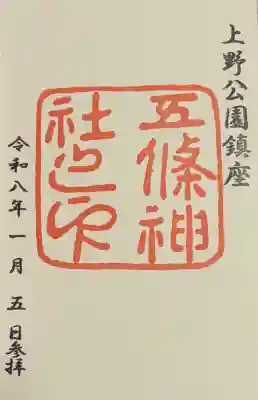 上野公園鎮座
五條神
社之印
令和八年一月五日参拝